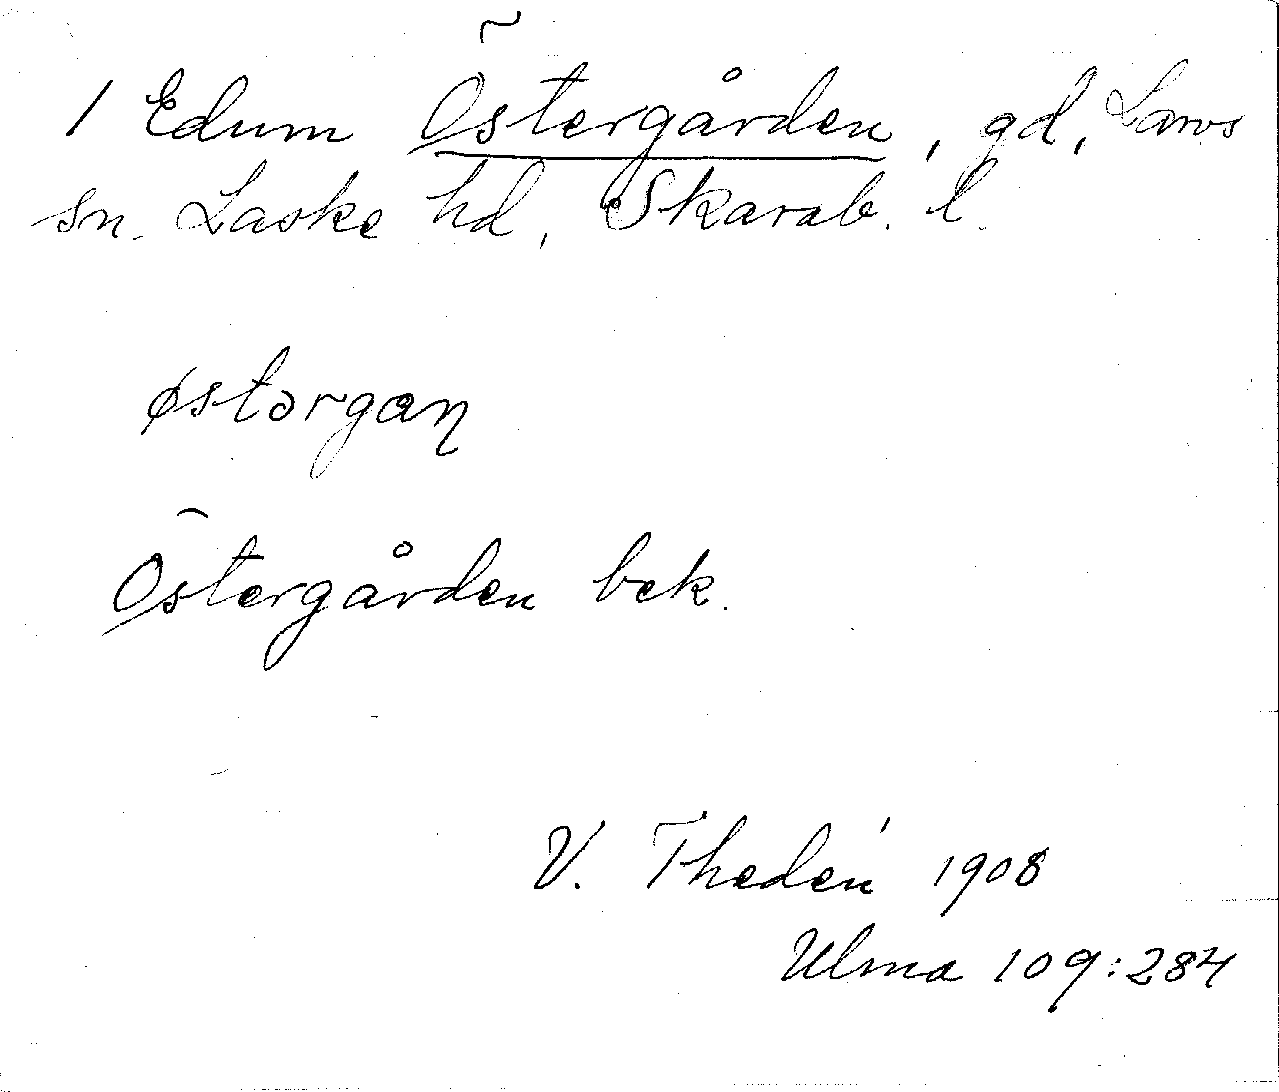 1 Edum Östergården, gd, Larvs
sn. Laske hd, Skarab. l.
østərgaɳ
Östergården bek.
V. Thedén 1908
Ulma 109:284